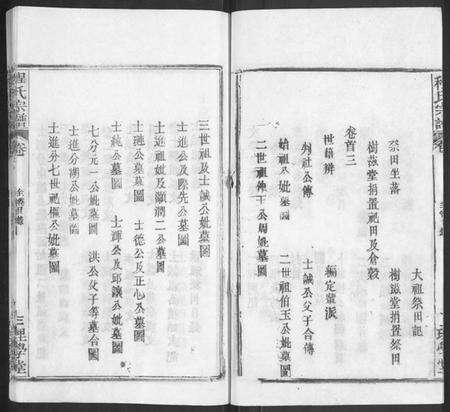 大祖祭田記
祭田坐落
樹滋堂捐置祭田
樹滋堂捐置祀田及倉穀
卷首三
世籍辨
編定輩派
列社公傳
士誠公父子合傳
始祖八公妣墓圖
二世祖伯玉公妣墓圖
二世祖仲十公周妣墓圖
三世祖及士誠公妣墓圖
士進公及際先公墓圖
士進祖妣及灝潤二公墓圖
士璉公墓圖
士德公及正心公墓圖
士純公墓圖
士譚公及邱饒公妣墓圖
七分元一公妣墓圖
洪公父子等墓合圖
士進分潮公妣墓圖
士進分七世祀樞公妣墓圖
程氏宗譜
卷
三理學堂
程氏宗譜
卷